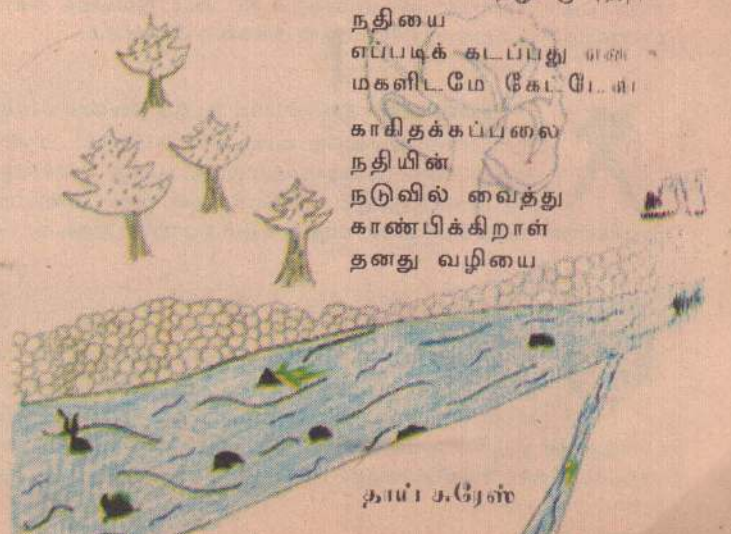 நதியை
எப்படிக் கடப்பது என
மகளிடமே கேட்டேன்
காகிதக்கப்பலை
நதியின்
நடுவில் வைத்து
காண்பிக்கிறாள்
தனது வழியை
தாய் சுரேஸ்